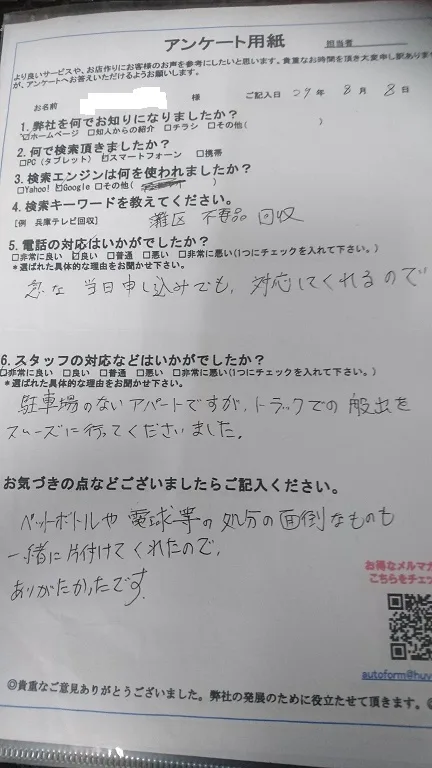 アンケート用紙
担当者
より良いサービスや、お店作りにお客様のお声を参考にしたいと思います。貴重なお時間を頂き大変申し訳ありま
が、アンケートへお答えいただけるようお願いします。
お名前 様 ご記入日 29年 8月 8日
1. 弊社を何でお知りになりましたか?
☑ホームページ □知人からの紹介 □チラシ □その他( )
2. 何で検索頂きましたか?
□PC(タブレット) ☑スマートフォーン □携帯
3. 検索エンジンは何を使われましたか?
□Yahoo! ☑Google □その他( )
4. 検索キーワードを教えてください。
[例 兵庫テレビ回収] 灘区 不要品 回収
5. 電話の対応はいかがでしたか?
□非常に良い ☑良い □普通 □悪い □非常に悪い(1つにチェックを入れて下さい。)
*選ばれた具体的な理由をお聞かせ下さい。
急な 当日申し込みでも、対応してくれるので
6. スタッフの対応などはいかがでしたか?
□非常に良い □良い □普通 □悪い □非常に悪い(1つにチェックを入れて下さい。)
*選ばれた具体的な理由をお聞かせ下さい。
駐車場のないアパートですが、トラックでの搬出を
スムーズに行ってくださいました。
お気づきの点などございましたらご記入ください。
ペットボトルや 電球等の 処分の 面倒なものも
一緒に片付けてくれたので、
ありがたかったです。
お得なメルマガ
こちらをチェッ
autoform@huv
◎貴重なご意見ありがとうございました。弊社の発展のために役立たせて頂きます。◎